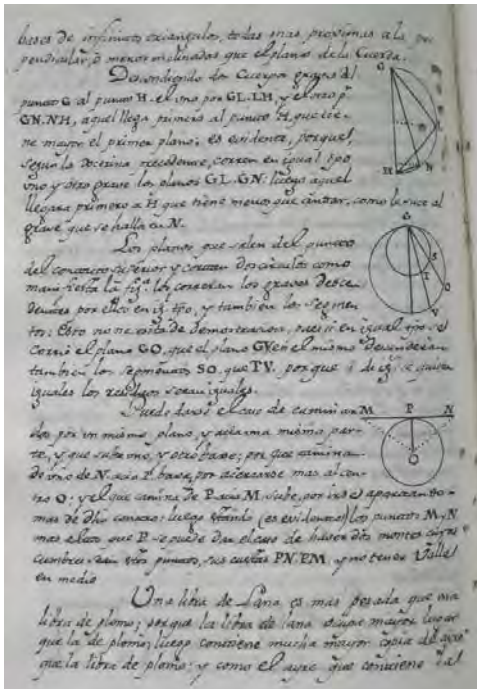 bases de infinitos triangulos, todas mas proximas a la per
pendicular, ò menos inclinadas que el plano de la Cuerda.
Descendiendo dos Cuerpos graves del
punto G al punto H. el uno por GL.LH, y el otro p.
GN.NH, aquel llega primero al punto H, que tie-
ne mayor el primer plano; es evidente, porque,
segun la doctrina precedente, corren en igual tpo
uno y otro grave los planos GL.GN: luego aquel
llegara primero a H que tiene menos que andar, como le sucede al
grave que se halla en N.
Los planos que salen del punto
del contacto superior y cortan dos circulos como
manifiesta la fig.ª los correran los graves descen
dientes por ellos en ig.l tpo, y tambien los segmen
tos: Esto no necesita de demostracion, pues si en igual tpo se
corrio el plano GO, que el plano GV en el mismo descenderan
tambien los segmentos SO, que TV. porque si de ig.s se quitan
iguales los residuos seran iguales.
Puede darse el caso de caminar
dos por un mismo plano, y acia una misma par-
te, y que suba uno, y otro baxe; por que camina
desde N. acia P. baxa, por acercarse mas al cen-
tro O; y el que camina de P. acia M, sube, por irse apartando
mas de dho centro: luego estando (es evidente) los puntos M y N
mas altos que P. se puede dar el caso de haver dos montes cuyas
cumbres sean estos puntos, sus cuestas PN.PM, y no tener Valle
en medio
Una libra de Lana es mas pesada que una
libra de plomo; porque la libra de lana ocupa mayor lugar
que la de plomo; luego contiene mucha mayor copia de ayre
que la libra de plomo: y como el ayre que contiene
G
L
H
N
G
S
T
O
V
M
P
N
O